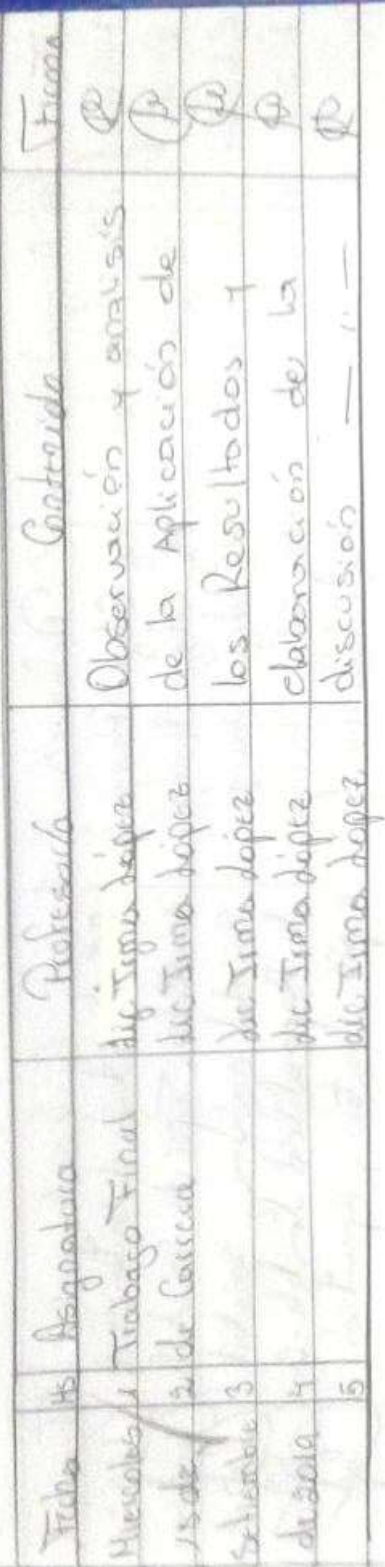 Fecha Hs Asignatura Profesor/a Contenido Firma
Miercoles 1 Trabajo Final Lic Irma López Observación y analisis
18 de 2 de Carrera Lic Irma López de la Aplicación de
Setiembre 3 Lic Irma López los Resultados y
de 2019 4 Lic Irma López elaboración de la
5 Lic Irma López discusión — 11 —